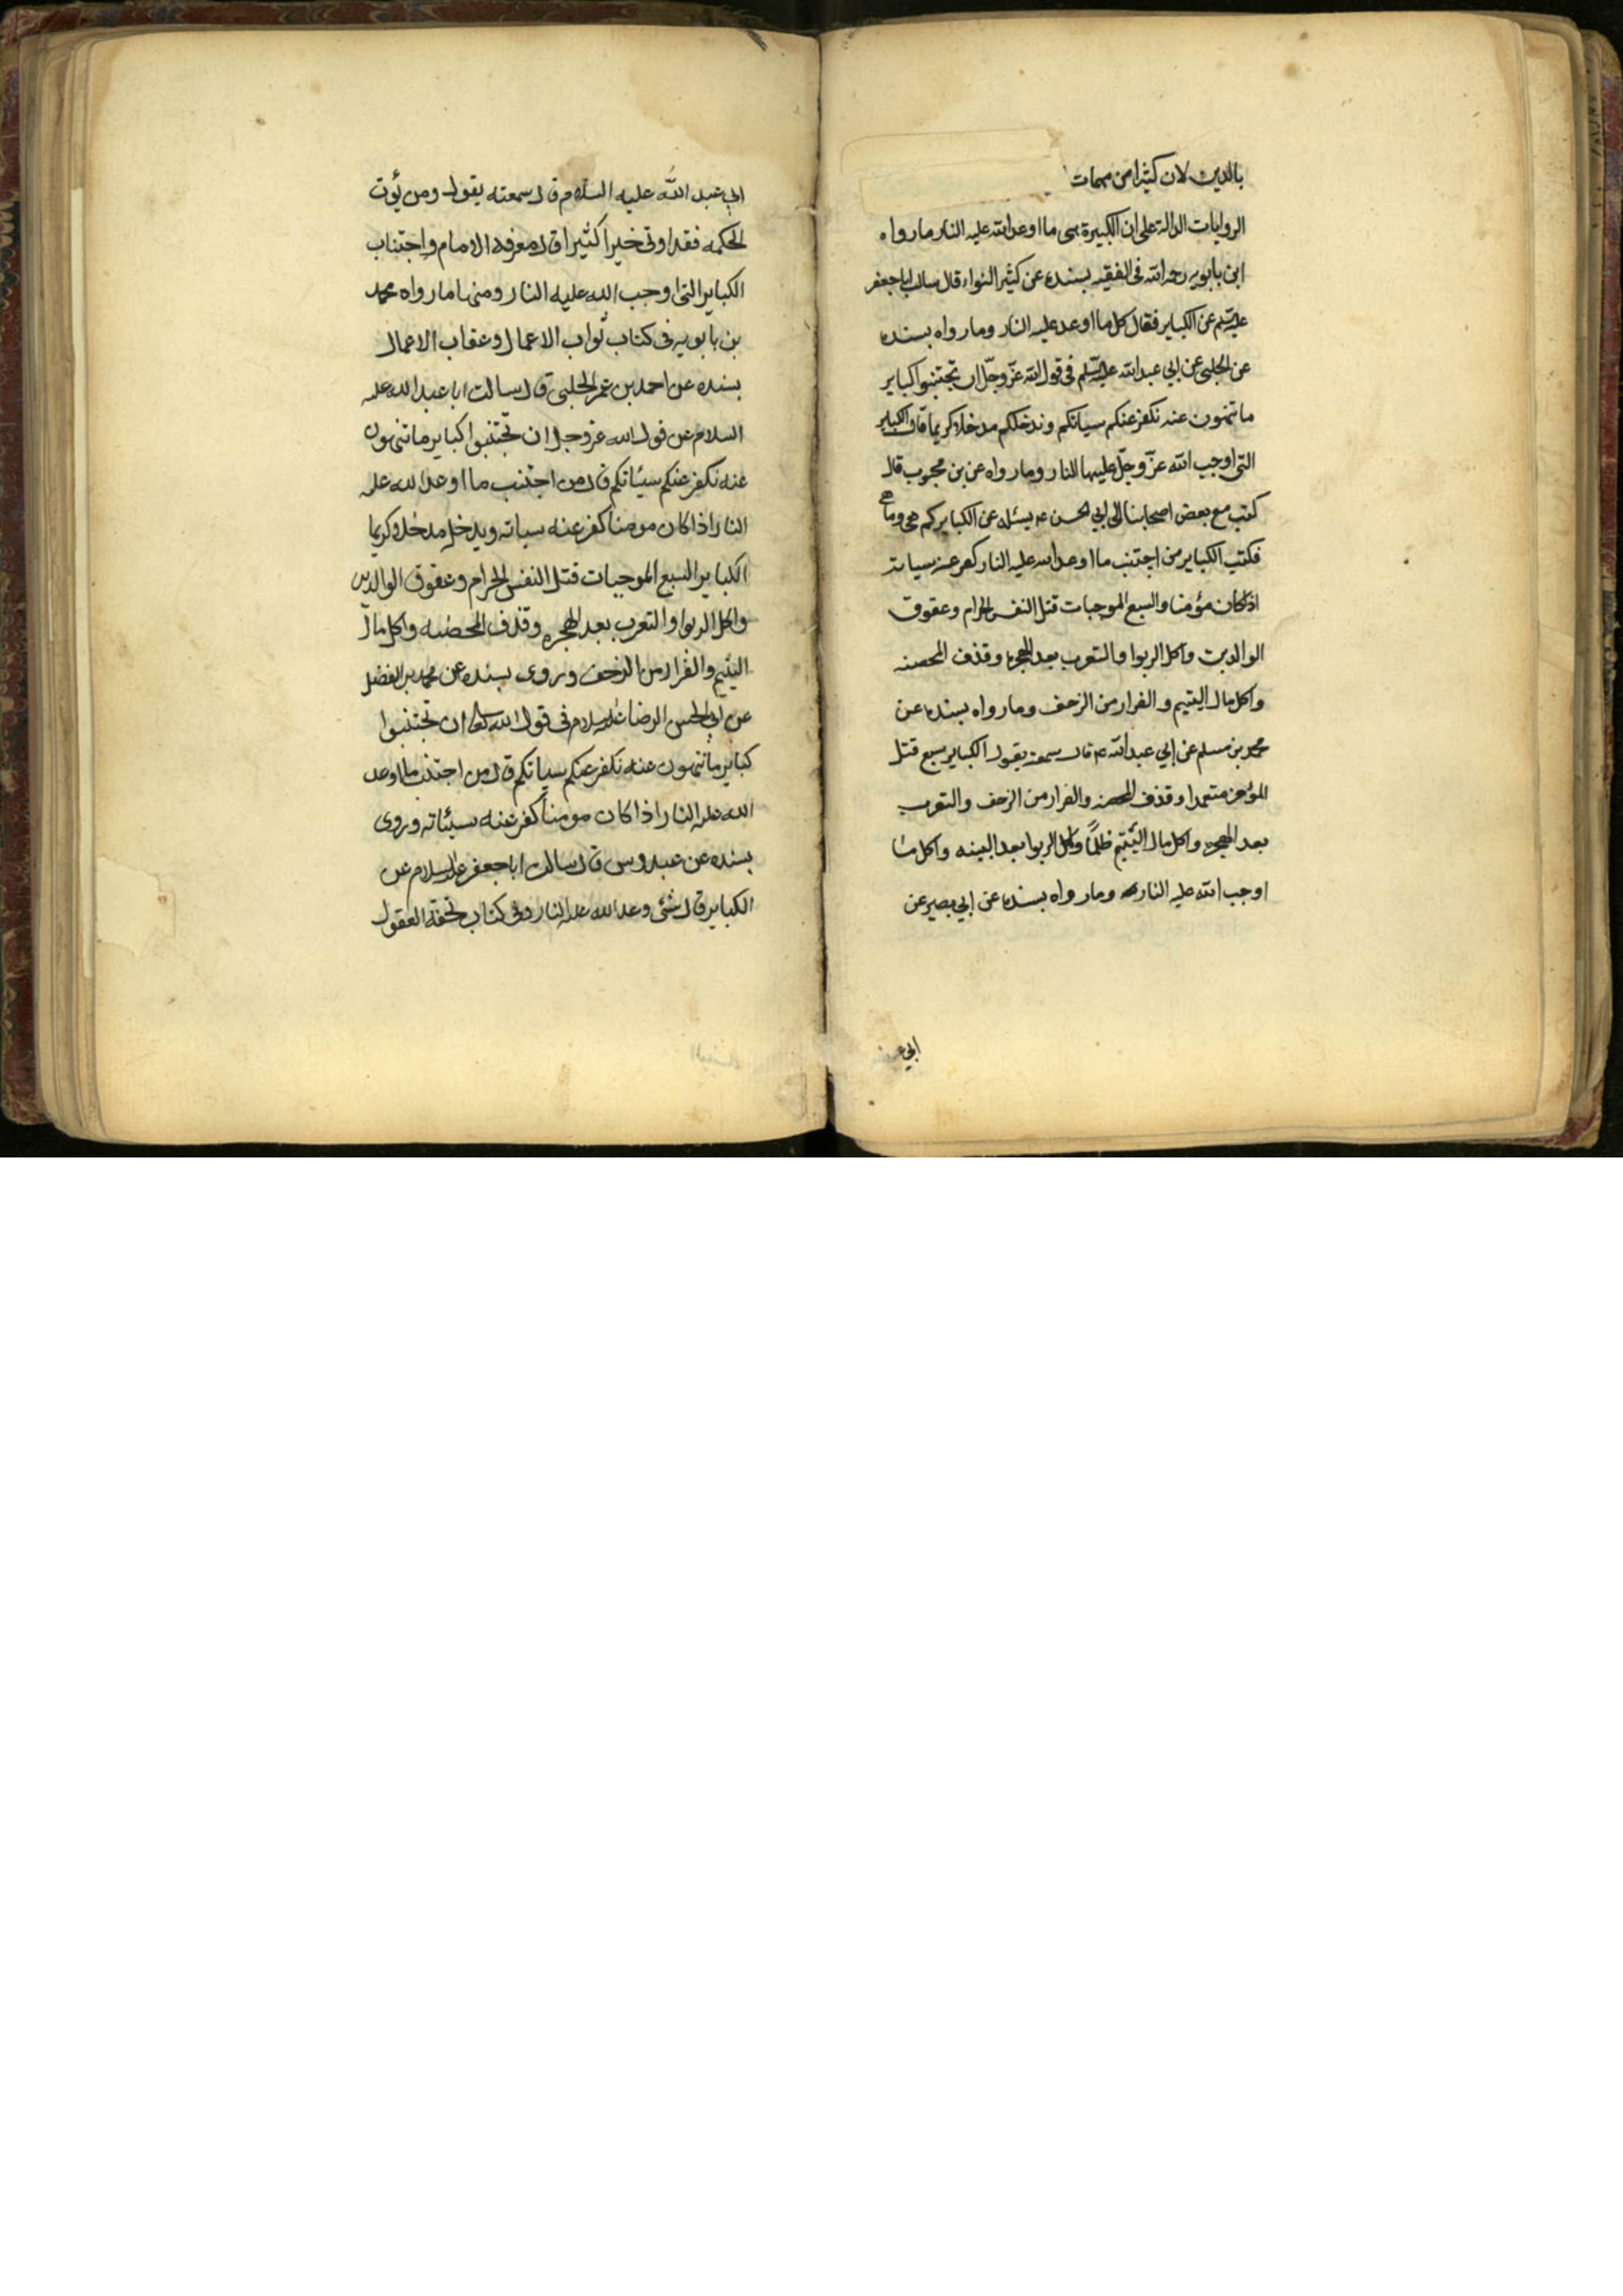 بالدين لان كثيرا من مهمات
الروايات الدالة على ان الكبيرة هى ما اوعد الله عليه النار ما رواه
ابن بابويه رحمه الله فى الفقيه بسنده عن كثير النواء قال سالت اباجعفر
عليه السلم عن الكباير فقال كل ما اوعد عليه النار وما رواه بسنده
عن الحلبى عن ابي عبد الله عليه السلم فى قول الله عزّ وجلّ ان تجتنبوا كباير
ما تنهون عنه نكفر عنكم سياتكم وندخلكم مدخلا كريما قال الكباير
التى اوجب الله عزّ وجلّ عليها النار وما رواه عن بن محبوب قال
كتب مع بعض اصحابنا الى ابي الحسن ع يسئله عن الكباير كم هى وما هى
فكتب الكباير من اجتنب ما اوعد الله عليه النار كفر عنه سياته
اذا كان مؤمنا والسبع الموجبات قتل النفس الحرام وعقوق
الوالدين واكل الربوا والتعرب بعد الهجرة وقذف المحصنه
واكل مال اليتيم و الفرار من الزحف وما رواه بسنده عن
محمد بن مسلم عن ابي عبد الله ع قال سمعته يقول الكباير سبع قتل
المؤمن متعمدا وقذف المحصنه والفرار من الزحف والتعرب
بعد الهجره واكل مال اليتيم ظلمًا واكل الربوا بعد البينه واكل ما
اوجب الله عليه النار وما رواه بسنده عن ابي بصير عن
ابي عبد
ابي عبد الله عليه السلام قال سمعته يقول ومن يؤت
الحكمه فقد اوتى خيرا كثيرا قال معرفه الامام واجتناب
الكباير التى اوجب الله عليه النار ومنها ما رواه محمد
بن بابويه فى كتاب ثواب الاعمال وعقاب الاعمال
بسنده عن احمد بن عمر الحلبى قال سالت ابا عبد الله عليه
السلام عن قول الله عز وجل ان تجتنبوا كباير ما تنهون
عنه نكفر عنكم سيئاتكم قال من اجتنب ما اوعد الله عليه
النار اذا كان مومنا كفر عنه سياته ويدخله مدخلا كريما
الكباير السبع الموجبات قتل النفس الحرام وعقوق الوالدين
واكل الربوا والتعرب بعد الهجره وقذف المحصنه واكل مال
اليتيم والفرار من الزحف وروى بسنده عن محمد بن الفضل
عن ابي الحسن الرضا عليه السلام فى قول الله تعالى ان تجتنبوا
كباير ما تنهون عنه نكفر عنكم سياتكم قال من اجتنب ما اوعد
الله عليه النار اذا كان مومنا كفر عنه سيئاته وروى
بسنده عن عبدوس قال سالت ابا جعفر عليه السلام عن
الكباير قال شئ وعد الله عليه النار وفى كتاب تحفة العقول